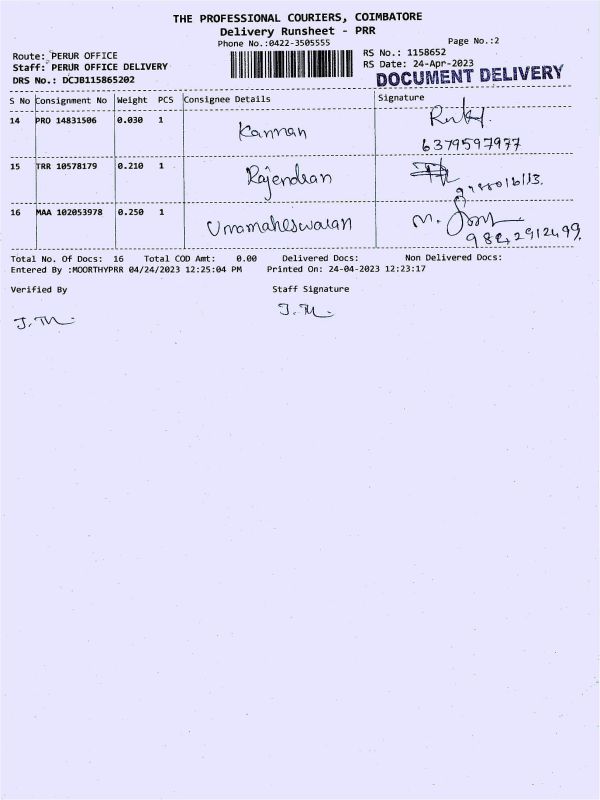 THE PROFESSIONAL COURIERS, COIMBATORE
Delivery Runsheet - PRR
Phone No.:0422-3505555
Page No.:2
Route: PERUR OFFICE
RS No.: 1158652
Staff: PERUR OFFICE DELIVERY
RS Date: 24-Apr-2023
DRS No.: DCJB115865202
DOCUMENT DELIVERY
S No Consignment No Weight PCS Consignee Details Signature
14 PRO 14831506 0.030 1 Kannan
6379597977
15 TRR 10578179 0.210 1 Rajendran
16 MAA 102053978 0.250 1 Umamaheswaran
Total No. Of Docs: 16 Total COD Amt: 0.00 Delivered Docs: Non Delivered Docs:
Entered By :MOORTHYPRR 04/24/2023 12:25:04 PM Printed On: 24-04-2023 12:23:17
Verified By Staff Signature